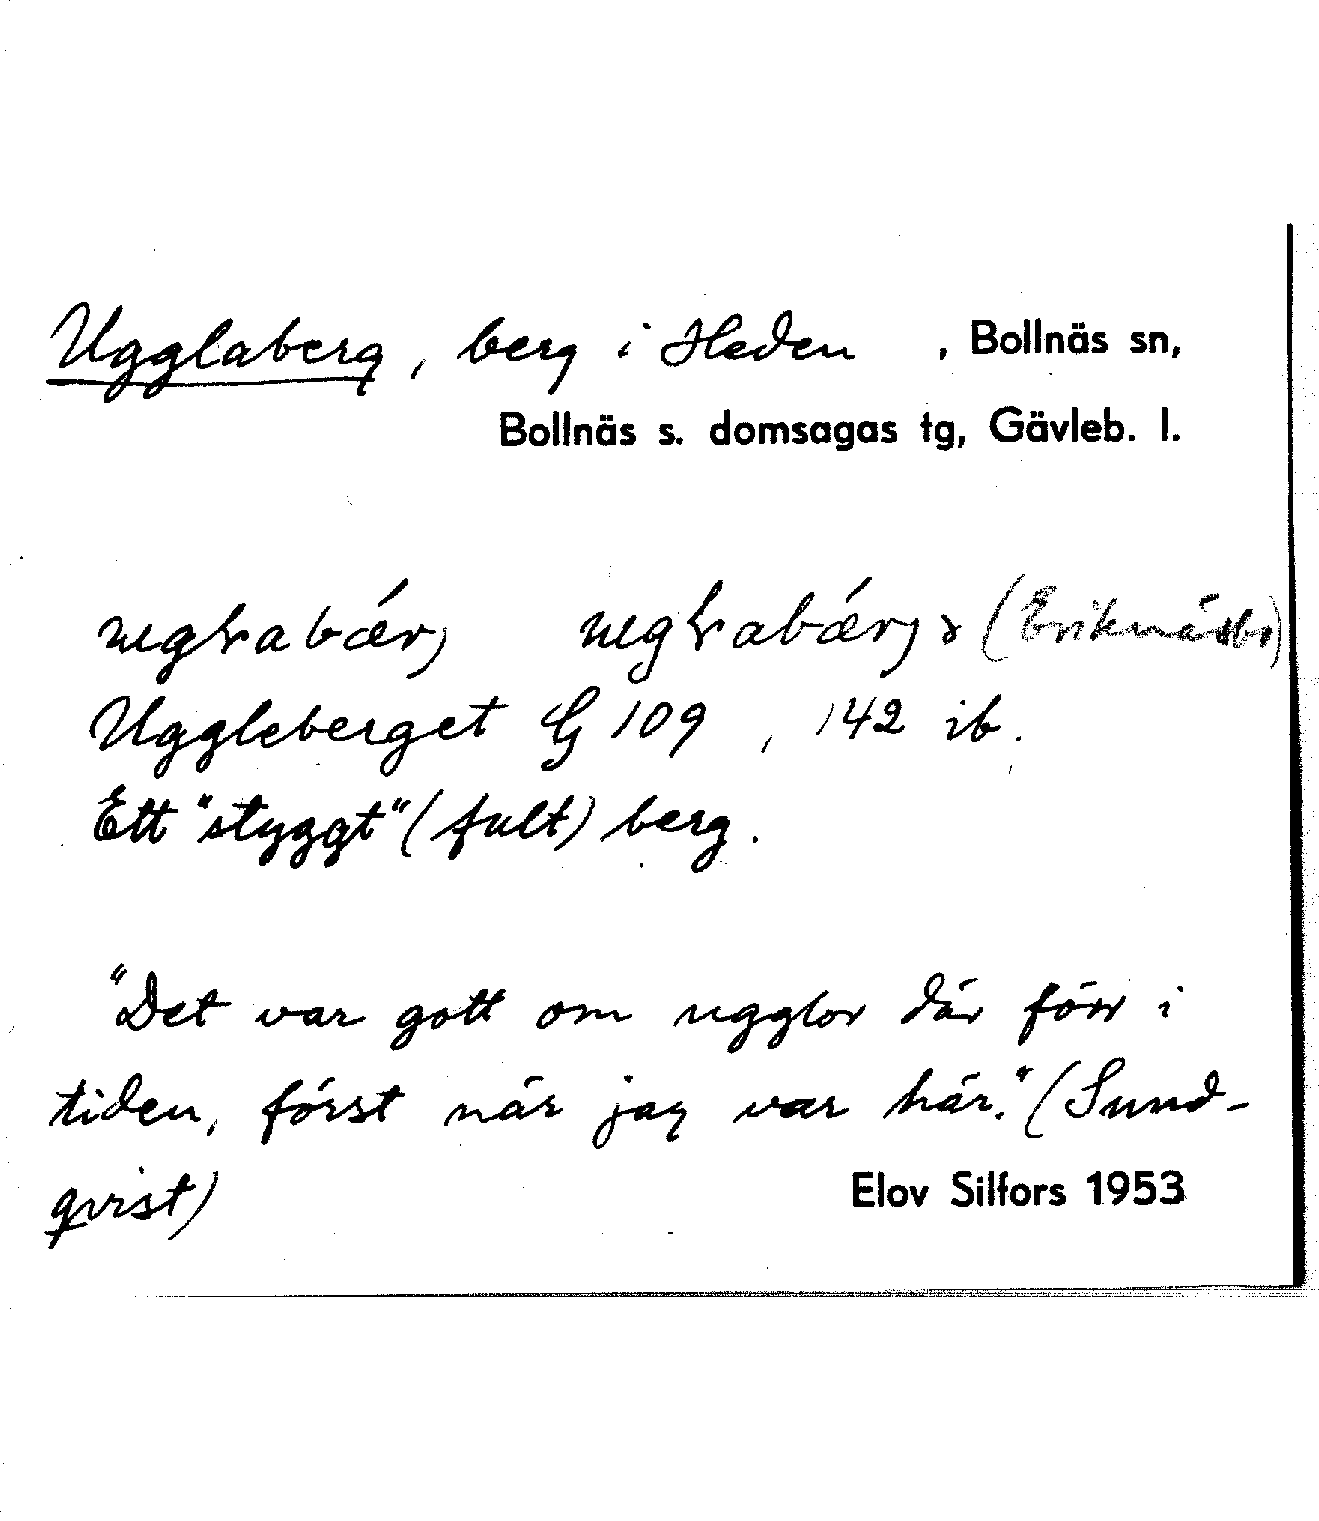 Ugglaberg, berg i Heden , Bollnäs sn,
Bollnäs s. domsagas tg, Gävleb. l.
(Eriknäsbo)
Uggleberget G 109 , 142 ib.
Ett "styggt" (fult) berg.
"Det var gott om ugglor där förr i
tiden, först när jag var här." (Sund-
qvist)
Elov Silfors 1953